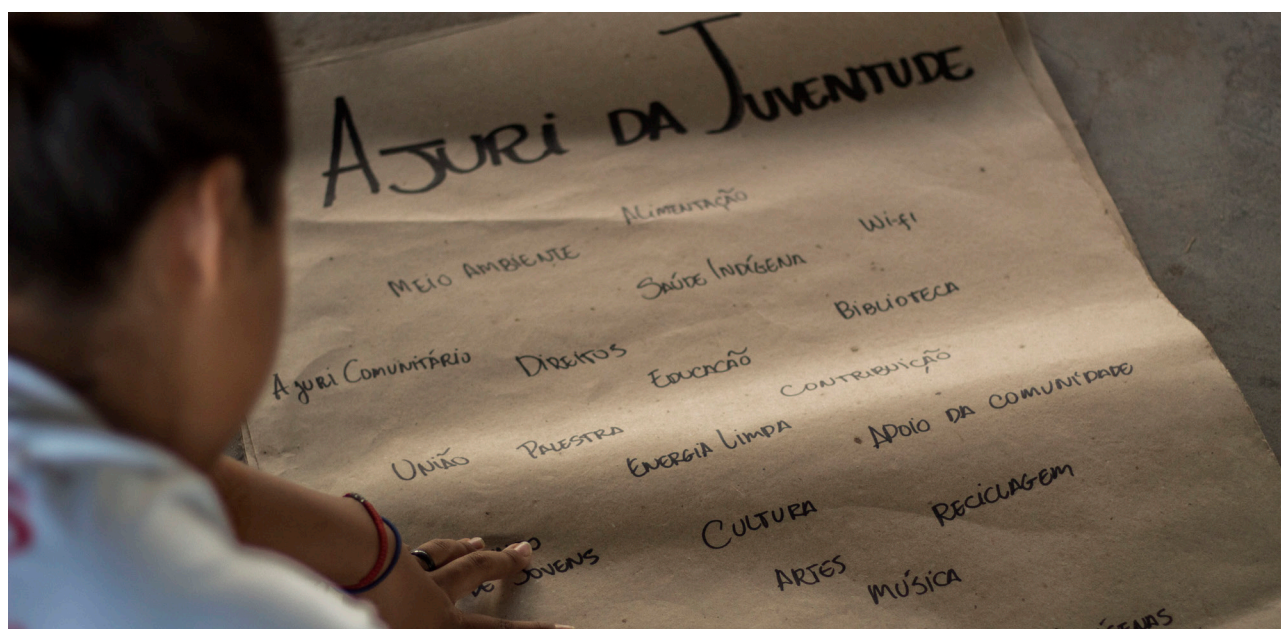 AJURI DA JUVENTUDE
ALIMENTAÇÃO
WI-FI
MEIO AMBIENTE
SAÚDE INDÍGENA
BIBLIOTECA
AJURI COMUNITÁRIO
DIREITOS
EDUCAÇÃO
CONTRIBUIÇÃO
UNIÃO
PALESTRA
ENERGIA LIMPA
APOIO DA COMUNIDADE
CULTURA
RECICLAGEM
DE JOVENS
ARTES
MÚSICA